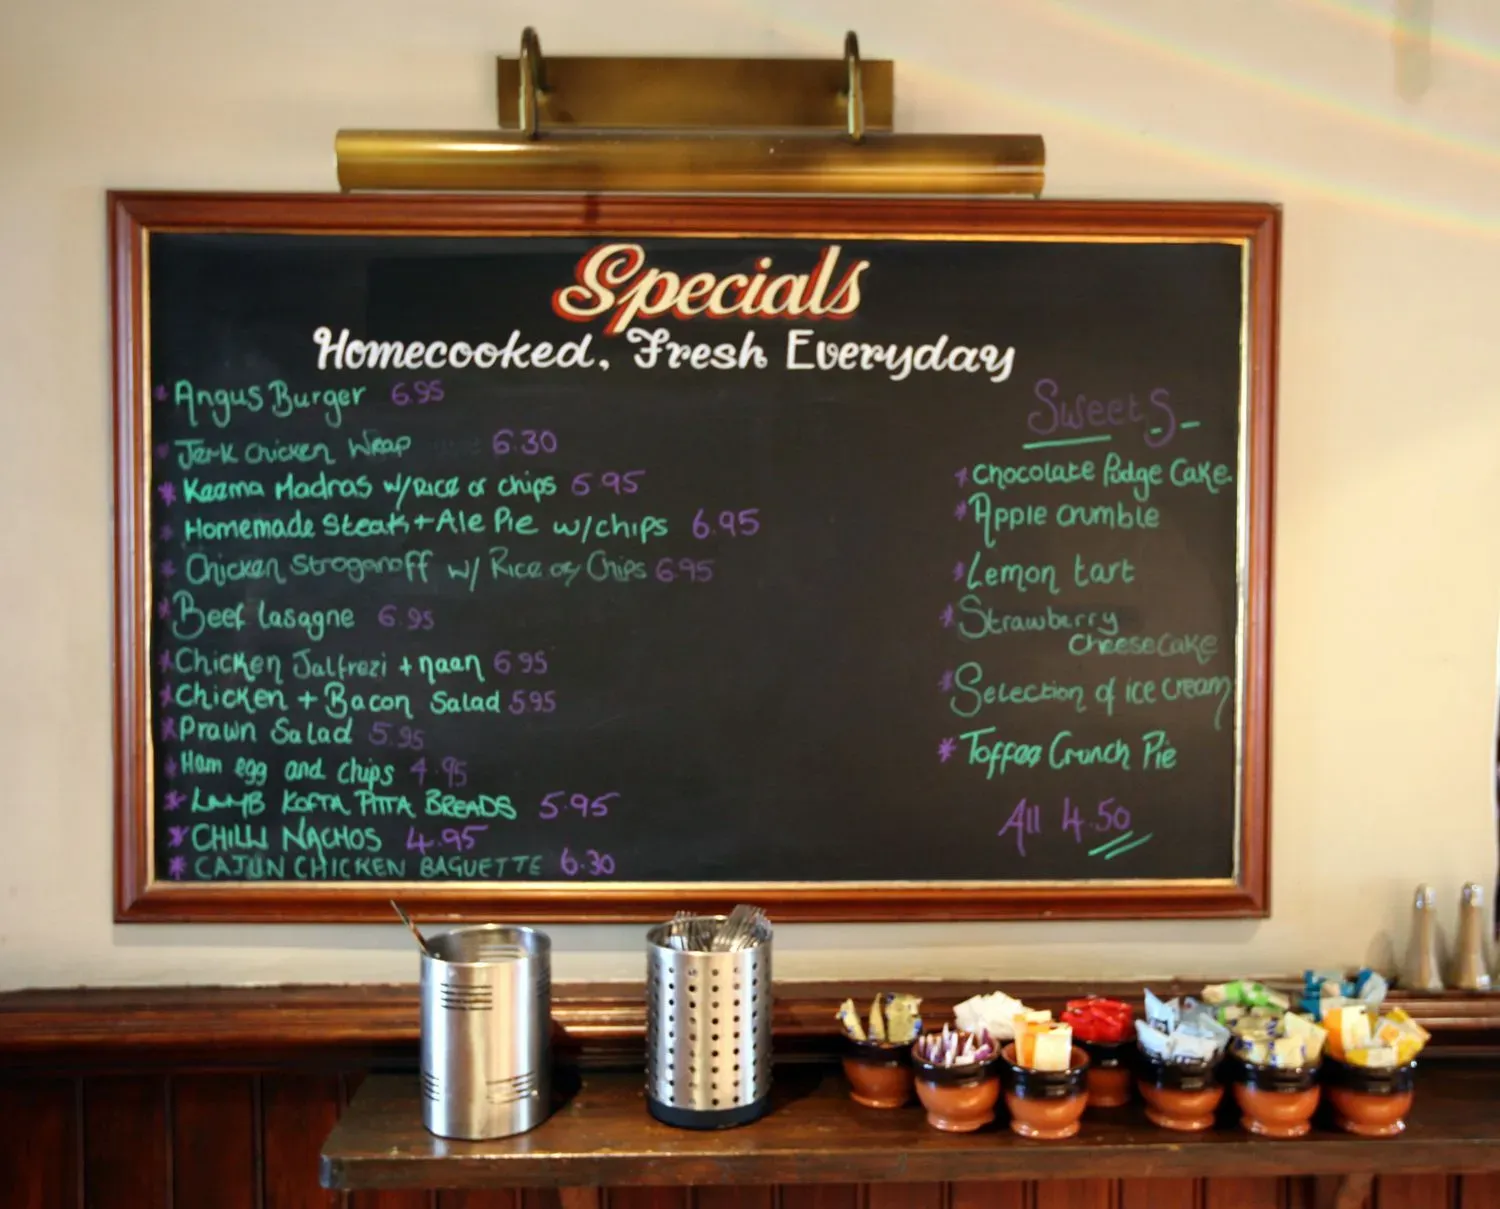 Specials
Homecooked, Fresh Everyday
* Angus Burger 6.95
* Jerk Chicken Wrap 6.30
* Keema Madras w/Rice or chips 5.95
* Homemade Steak + Ale Pie w/chips 6.95
* Chicken Stroganoff w/ Rice or Chips 6.95
* Beef Lasagne 6.95
* Chicken Jalfrezi + naan 6.95
* Chicken + Bacon Salad 5.95
* Prawn Salad 5.95
* Ham egg and chips 4.95
* LAMB KOFTA PITTA BREADS 5.95
* CHILLI NACHOS 4.95
* CAJUN CHICKEN BAGUETTE 6.30
Sweets
* Chocolate Fudge Cake
* Apple crumble
* Lemon tart
* Strawberry
cheesecake
* Selection of ice cream
* Toffee Crunch Pie
All 4.50